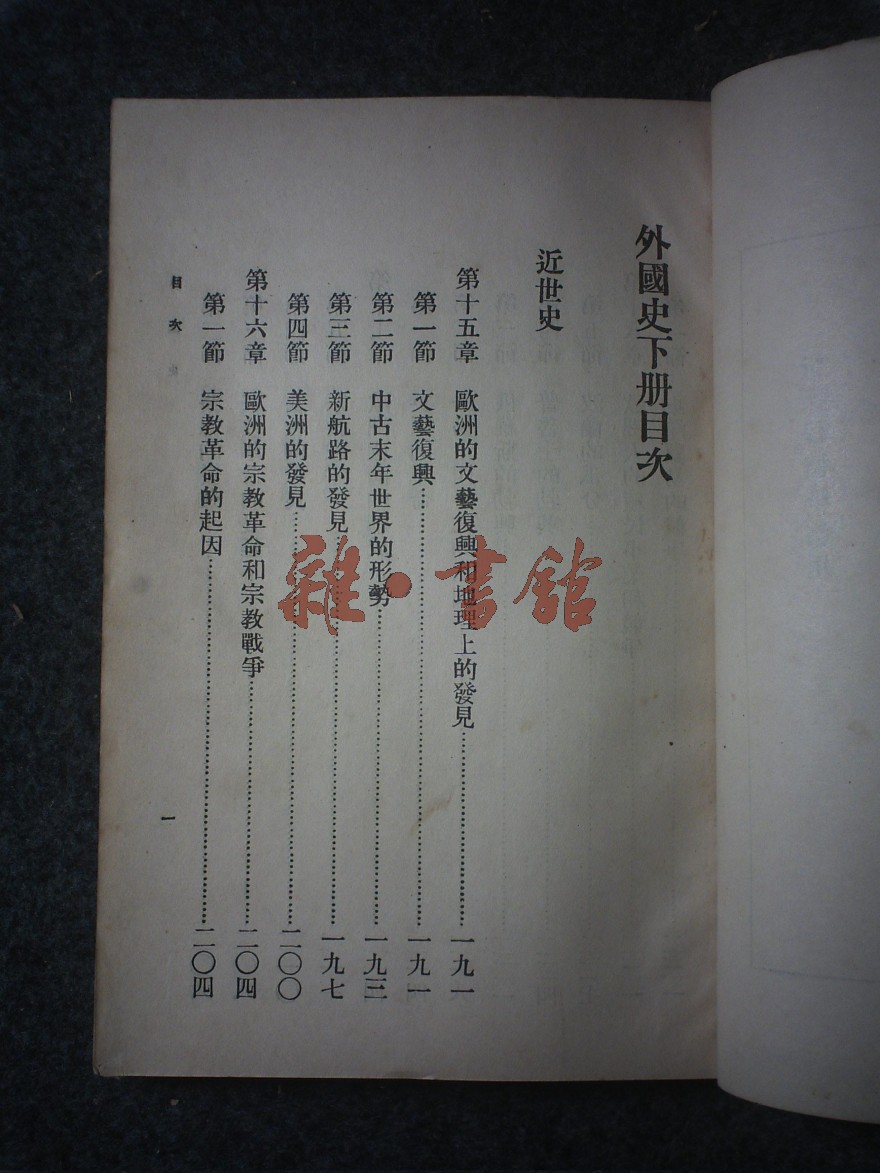 外國史下册目次
近世史
第十五章　歐洲的文藝復興和地理上的發見……一九一
第一節　文藝復興……一九一
第二節　中古末年世界的形勢……一九三
第三節　新航路的發見……一九七
第四節　美洲的發見……二〇〇
第十六章　歐洲的宗教革命和宗教戰爭……二〇四
第一節　宗教革命的起因……二〇四
目次
一
雜·書館